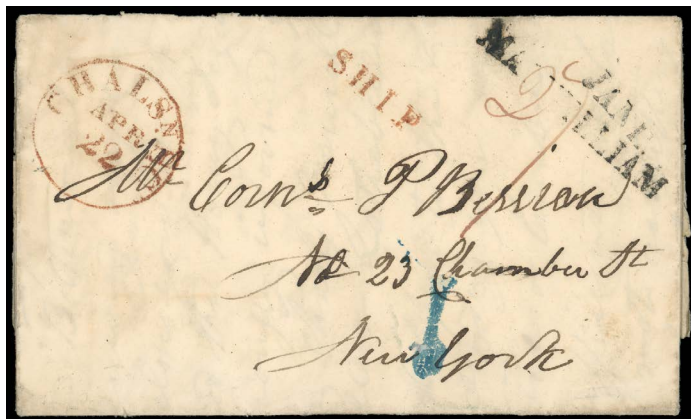 CHALSN
APR
22
SHIP
2
JANE
Mr. Corns. P Berrien
No 23 Chamber St
New York